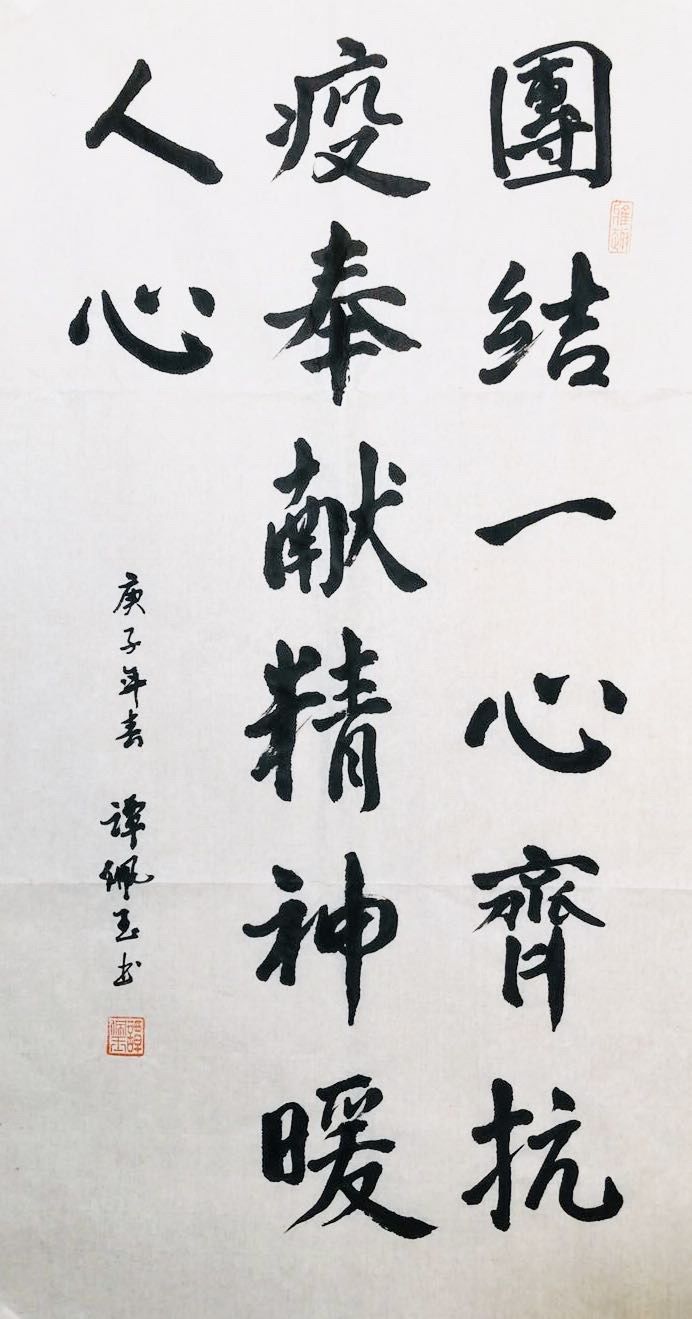 團結一心齊抗
疫奉献精神暖
人心
庚子年春 譚佩玉书